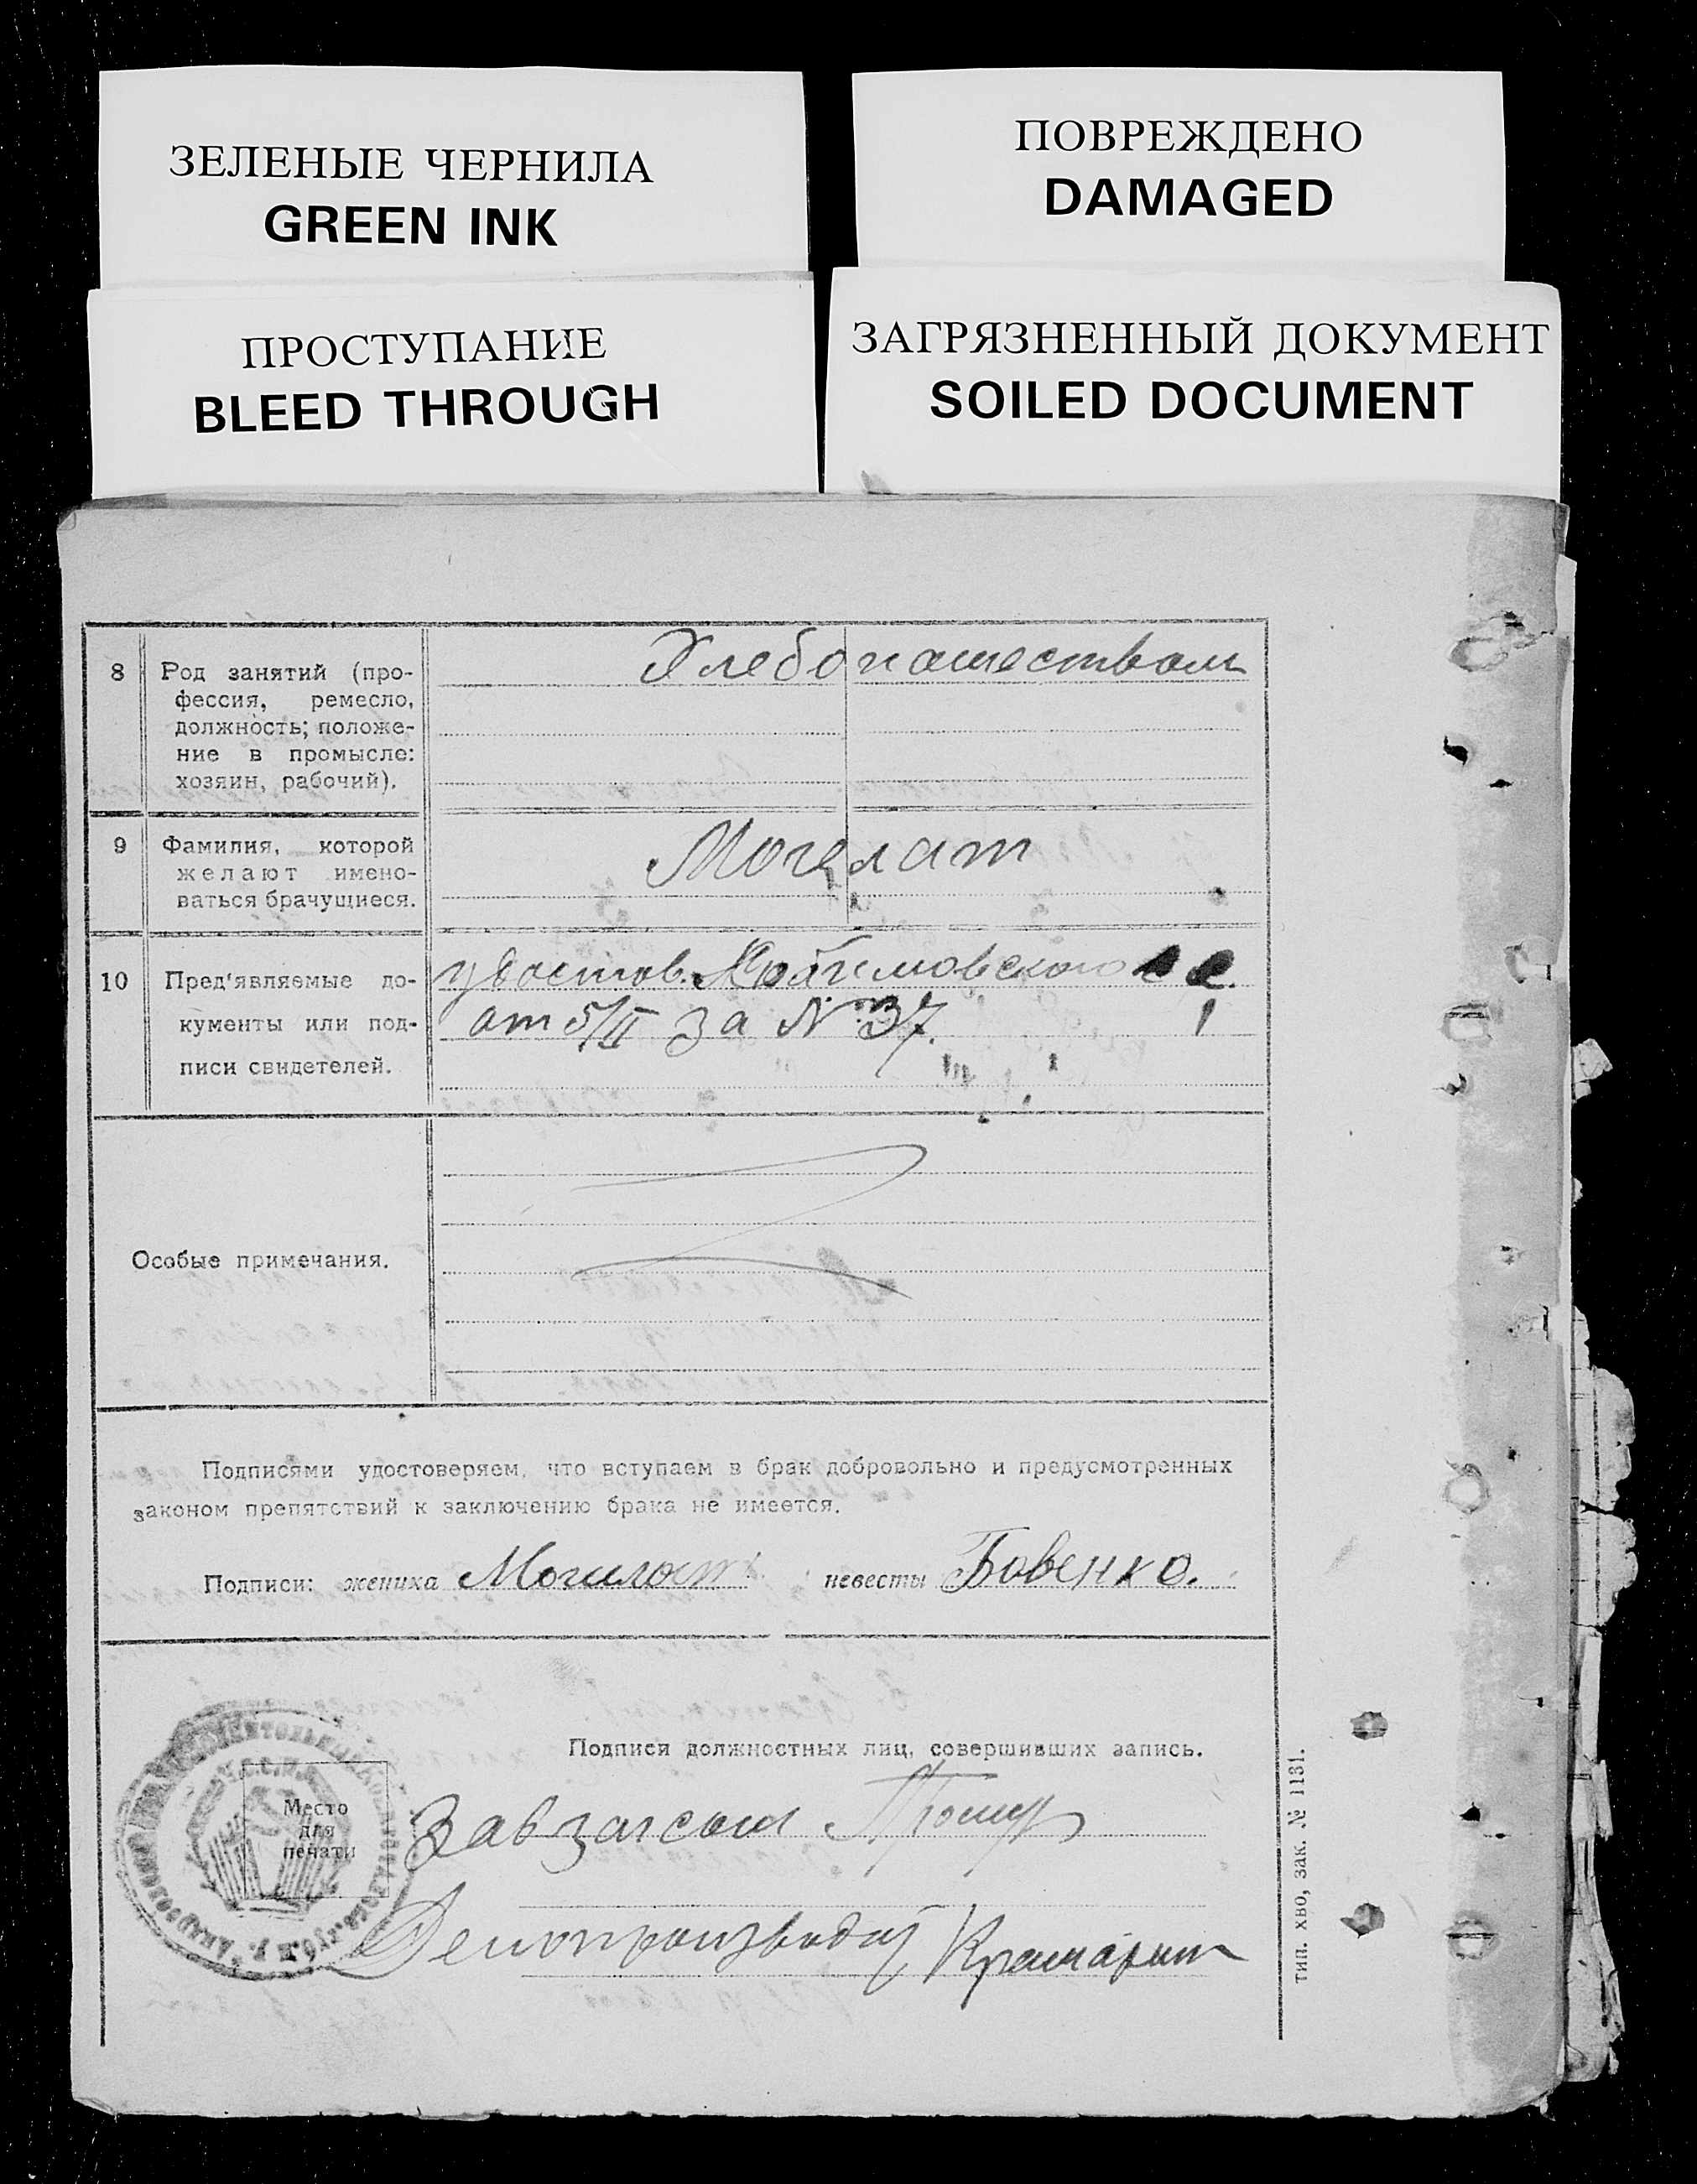 ЗЕЛЕНЫЕ ЧЕРНИЛА
GREEN INK
ПОВРЕЖДЕНО
DAMAGED
ПРОСТУПАНИЕ
BLEED THROUGH
ЗАГРЯЗНЕННЫЙ ДОКУМЕНТ
SOILED DOCUMENT
8 Род занятий (про-
фессия, ремесло,
должность; положе-
ние в промысле:
хозяин, рабочий).
Хлебопашеством
9 Фамилия, которой
желают имено-
ваться брачущиеся.
Могелат
10 Пред'являемые до-
кументы или под-
писи свидетелей.
удостов.
от 5/II за № 37.
Особые примечания.
Подписями удостоверяем, что вступаем в брак добровольно и предусмотренных
законом препятствий к заключению брака не имеется.
Подписи: жениха Могилат невесты Бовенко.
Подписи должностных лиц, совершивших запись.
Место
для
печати
Завзагсом
Делопроизводит
тип. ХВО, зак. № 1131.